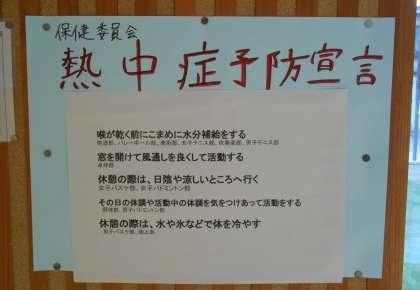 保健委員会
熱中症予防宣言
喉が乾く前にこまめに水分補給をする
剣道部、バレーボール部、美術部、女子テニス部、吹奏楽部、男子テニス部
窓を開けて風通しを良くして活動する
卓球部
休憩の際は、日陰や涼しいところへ行く
女子バスケ部、女子バドミントン部
その日の体調や活動中の体調を気をつけあって活動をする
野球部、男子バドミントン部
休憩の際は、水や氷などで体を冷やす
男子バスケ部、陸上部